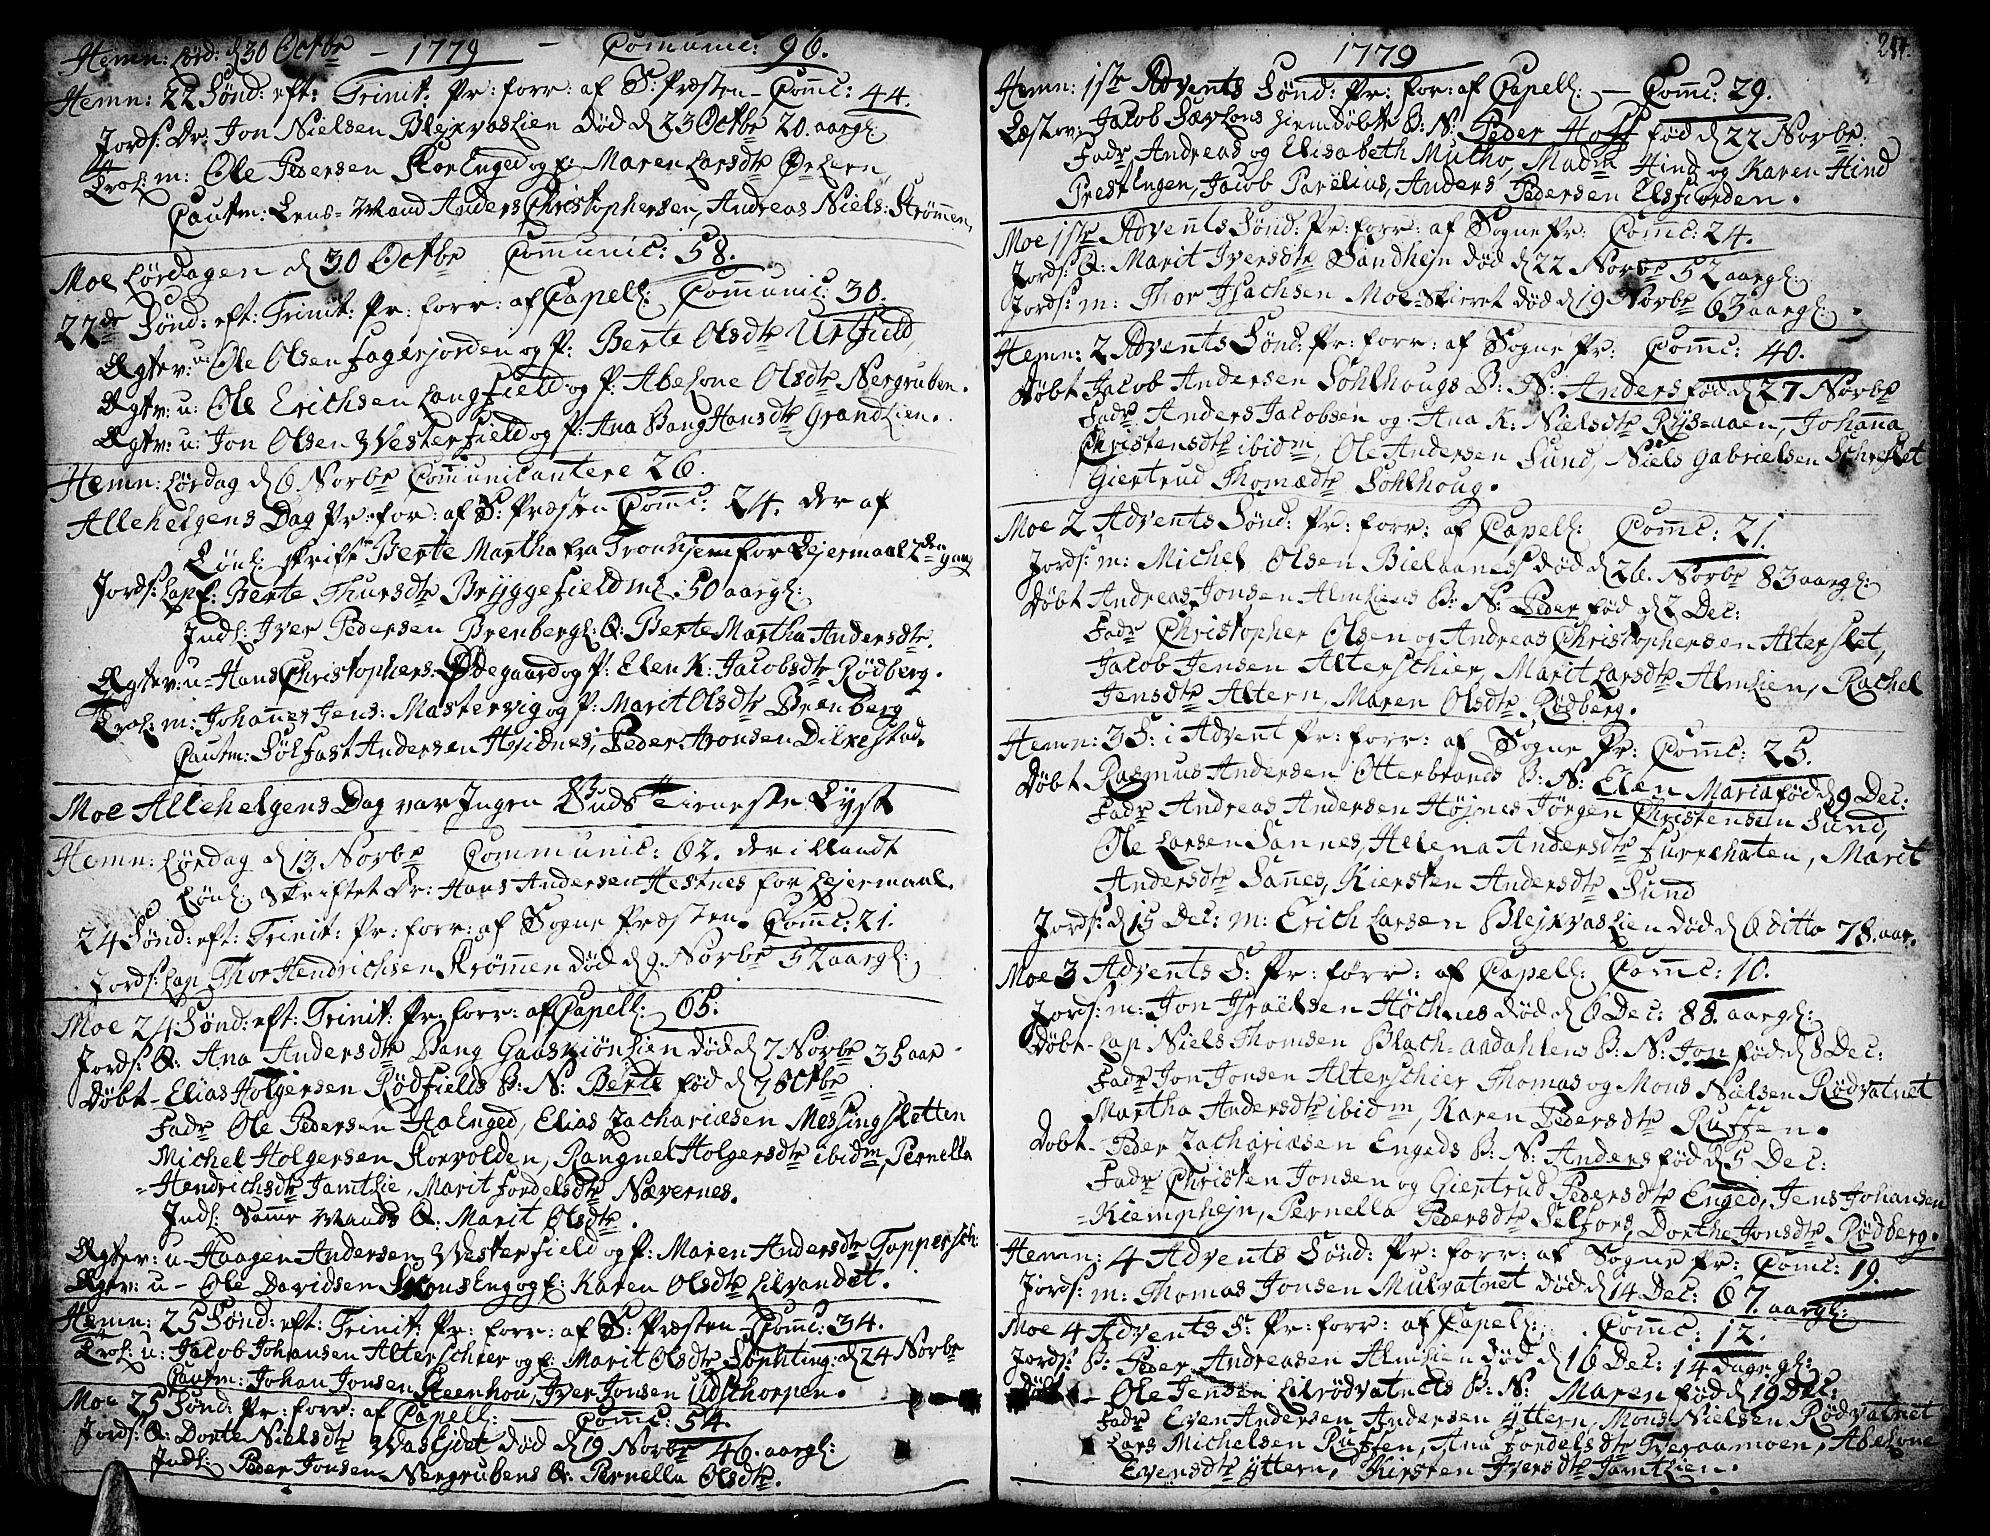 Hemn: Lørd: d 30 Octbr – 1779 – Comunic: 96.
Hemn: 22 Sønd: eft: Trinit: Pr: forr: af S: Præsten – Comc: 44.
Jords: Dr: Jon Nielsen Blejkvaslien død d 23 Octbr 20. aar gl:
Trol: m: Ole Pedersen KorEnged og P: Maren Larsdtr
Cautm: Lens=Mand Anders Christophersen, Andreas Niels: Strømmen,
Moe Lørdagen d 30 Octbr Comunic: 58.
22de Sønd: eft: Trinit: Pr: forr: af Capell: Comunic: 30.
Ægtev: u: Ole Olsen Fagerjorden og P: Berte Olsdtr Urtfield,
Ægtv: u: Ole Erichsen Langfield og P: Abelone Olsdtr Nergruben.
Ægtv: u: Jon Olsen Westerfield og P: Ana Bang Hansdtr Grandlien.
Hemn: Lørdag d 6 Novbr Comunicantere 26.
Allehelgens Dag Pr: for: af S: Præsten Comc: 24. der af
Lønl: skrift Berte Martha fra Tronhjem for Lejermaal 2den gang
Jords: Lap E: Berte Thursdtr Bryggefieldm: 50 aar gl:
Indl: Iver Pedersen Brenbergl: Q: Berte Martha Andersdtr.
Ægtev: u= Hans Christophers: Ødegaard og P: Elen K: Jacobsdtr Rødberg.
Trol: m: Johanes Jens: Mastervig og P: Marit Olsdtr Brenberg
Cautm: Sølfast Andersen Hejdnes, Peder Aronsen Dilkestad.
Moe Allehelgens Dag var Ingen Guds Tieneste Lyst
Hemn: Lørdag d 13 Novbr Communic: 62. der iblandt
Lønl: Skriftet Dr: Hans Andersen Hestnes for Lejermaal.
24 Sønd: eft: Trinit: Pr: forr: af Sogne Præsten. Comc: 21.
Jords: Lap Thor Hendrichsen Strømmen død d 9. Novbr 52 aar gl:
Moe 24 Sønd: eft: Trinit: Pr: forr: af Capell: 65.
Jords: Q: Ana Andersdtr Bang Gaaskiønlien død d 7 Novbr 35 aar
Døbt – Elias Holgersen Rødfields B: N: Berte fød d 7 Octbr
Fadr Ole Pedersen HaEnged, Elias Zachariæsen Messingsletten
Michel Holgersen Storvolden, Rangnel Holgersdtr ibidm, Pernella
=Hendrichsdtr Jamtlie, Marit Fordelsdtr Nævernes.
Indl: Samme Mands Q: Marit Olsdtr.
Ægtev: u – Haagen Andersen Westerfield og P: Maren Andersdtr Toppersch:
Ægtev: u – Ole Davidsen SkonsEng og P: Karen Olsdtr Lilvandet.
Hemn: 25 Sønd: eft: Trinit: Pr: forr: af S: Præsten – Comc: 34.
Trol: u: Jacob Johansen Alterschier og P: Marit Olsdtr Sophting: d 24 Novbr
Cautm: Johan Jonsen Steenhou, Iver Jonsen Udschorpen.
Moe 25 Sønd: Pr: forr: af Capell: – Comc: 54.
Jords: Q: Dorte Nielsdtr Waslejdet død d 19 Novbr 46. aar gl:
Indl: Peder Jonsen Nergrubens Q: Pernella Olsdtr.
1779
Hemn: 1ste Advents Sønd: Pr: for: af Capell: – Comc: 29.
Jacob hiemdøbte B: N: Peder Hoff fød d 22 Novbr:
Fadr Andreas og Elisabeth Mutho, Madm Hind og Karen Hind
PrestEngen, Jacob Parelius, Anders Pedersen Elsfiorden.
Moe 1ste Advents Sønd: Pr: forr: af Sogne Pr: Comc: 24.
Jords: Q: Marit Iversdtr Sandhejn død d 22 Novbr 52 aar gl:
Jords: m: Thor Isachsen Moe=Skieret død d 19 Novbr 63 aar gl:
Hemn: 2 Advents Sønd: Pr: forr: af Sogne Pr: Comc: 40.
Døbt Jacob Andersen Sohlhougs B: N: Anders fød d 27 Novbr
Fadr Anders Jacobsen og Ana K: Nielsdtr Rys=aaen, Johana
Christensdtr ibidm, Ole Andersen Sund, Niels Gabrielsen Schresket
Giertrud Thomædtr Sohlhoug.
Moe 2 Advents Sønd: Pr: forr: af Capell: Comc: 21.
Jords: m: Michel Olsen Bielaanes død d 26. Novbr 83 aar gl:
Døbt Andreas Jonsen Almliens B: N: Peder fød d 2 Dec:
Fadr Christopher Olsen og Andreas Christophersen Alterslet,
Jacob Jensen Alterschier, Marit Larsdtr Almlien, Rachel
Jensdtr Altern, Maren Olsdtr Rødberg.
Hemn: 3 S: i Advent Pr: forr: af Sogne Pr: Comc: 25.
Døbt Rasmus Andersen Otterbrands B: N: Elen Maria fød d 9 Dec:
Fadr Andreas Andersen Højnes Jørgen Christensen Sund,
Ole Larsen Sannes, Helena Andersdtr Furrehaten, Marit
Andersdtr Sanes, Kiersten Andersdtr Sund
Jords: d 15 Dec: m: Erich Larsen Blejkvaslien død d 6 ditto 78. aar.
Moe 3 Advents S: Pr: forr: af Capell: Comc: 10.
Jords: m: Jon Israelsen Høchnes død d 6 Dec: 88. aar gl:
Døbt – Lap Niels Thomsen Blach=aadahlens B: N: Jon fød d 8 Dec:
Fadr Jon Jonsen Alterschier Thomas og Mons Nielsen Rødvatnet
Martha Andersdtr ibidm, Karen Pedersdtr Ruffen.
Døbt – Peder Zachariæsen Engeds B: N: Anders fød d 5 Dec:
Fadr Christen Jonsen og Giertrud Pedersdtr Enged, Jens Johansen
=Kiemphejn, Pernella Pedersdtr Selfors, Dorthe Jonsdtr Rødberg.
Hemn: 4 Advents Sønd: Pr: forr: af Sogne Pr: Comc: 19.
Jords: m: Thomas Jonsen Mulvatnet død d 14 Dec: 67. aar gl:
Moe 4 Advents S: Pr: forr: af Capell: Comc: 12.
Jords: B: Peder Andreasen Almlien død d 16 Dec: 14 dage gl:
Døbt – Ole Jensen Lilrødvatnets B: N: Maren fød d 19 Dec:
Fadr Even Andersen Andersen Yttern, Mons Nielsen Rødvatnet
Lars Michelsen Ruffen, Ana Fordelsdtr Tveraamoen, Abelone
Evensdtr Yttern, Kirsten Iversdtr Jamtlien.